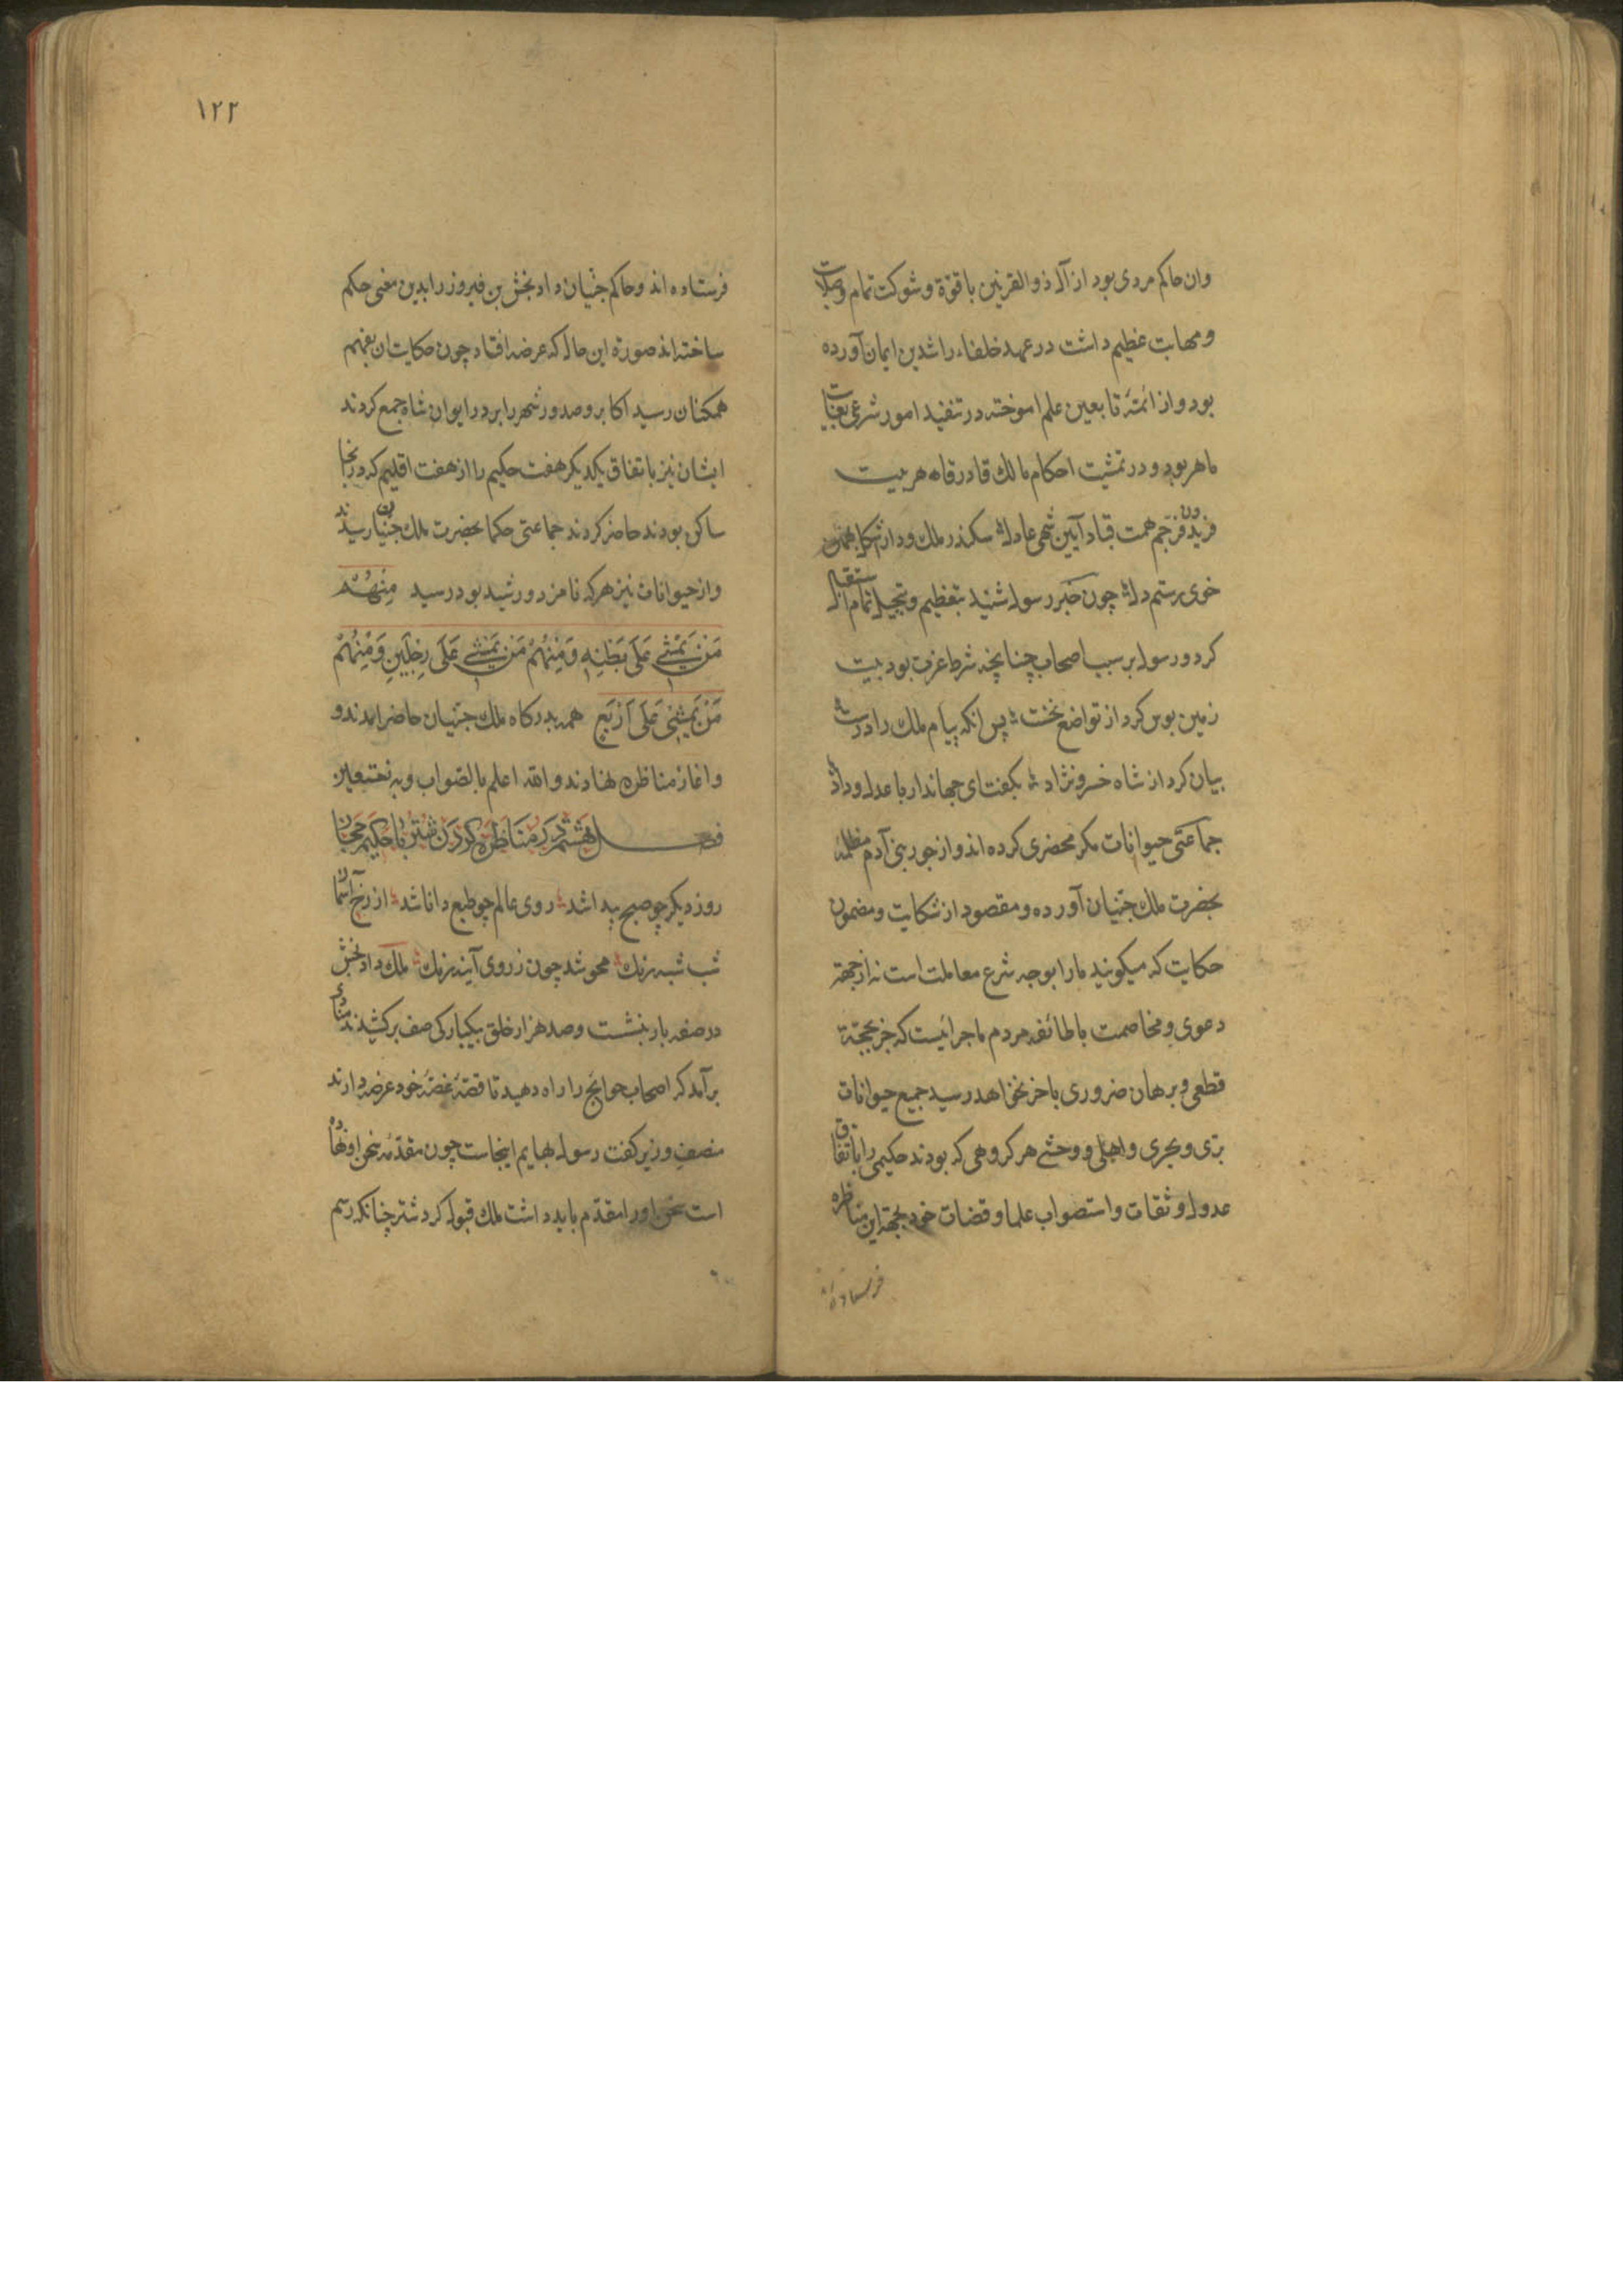 وان حاکم مردی بود از آل ذوالقرنین با قوّة و شوکت تمام وصلابت
ومهابت عظیم داشت در عهد خلفاء راشدین ایمان آورده
بود و از ائمّهٔ تابعین علم اموخته در تنفید امور شرعی بغایت
ماهر بود و در تمشیت احکام مالك قادر قاهر بیت
فریدون فر جم همت قباد آیین شهی عادل سکندر ملك و دارا شکل بهمن
خوی رستم دل چون خبر رسول شنید بتعظیم و تبجیل تمام استقبال
کرد و رسول بر سبیل اصحاب چنانچه شرط عزت بود بیت
زمین بوس کرد از تواضع نخست پس انکه پیام ملك را درست
بیان کرد از شاه خسرو نژاد بکفت ای جهاندار با عدل و داد
جماعتی حیوانات مکر محضری کرده اند و از جور بنی آدم مظلمه
بحضرت ملك جنّیان آورده و مقصود از شکایت و مضمون
حکایت که میکویند ما را بوجه شرع معاملت است نه از جهة
دعوی و مخاصمت با طائفهٔ مردم ماجرائیست که جز بحجّة
قطعی و برهان ضروری باخر نخواهد رسید جمیع حیوانات
برّی و بحری و اهلی و وحشی هر کروهی که بودند حکیمی را باتفاق
عدول و ثقات و استصواب علما و قضات خود بجهة این مناظره
فرستاده اند
۱۲۲
فرستاده اند و حاکم جنّیان داد بخش بن فیروز را بدین معنی حکم
ساخته اند صورة این حال که عرضه افتاد چون حکایت ان بفهم
همکنان رسید اکابر و صدور شهر را بر در ایوان شاه جمع کردند
ایشان نیز باتفاق یکدیکر هفت حکیم را از هفت اقلیم که در بخا
ساکن بودند حاضر کردند جماعتی حکما بحضرت ملك جنّیان رسیدند
و از حیوانات نیز هر که نامزد و رشید بود در رسید مِنْهُمْ
مَنْ یَمْشِی عَلَی بَطْنِهِ وَمِنْهُمْ مَنْ یَمْشِی عَلَی رِجْلَیْنِ وَمِنْهُمْ
مَنْ یَمْشِی عَلَی اَرْبَعٍ همه بدرکاه ملك جنّیان حاضر امدند و
و اغاز مناظره نهادند و الله اعلم بالصّواب وبه نستعین
فصل هشتم در مناظره کردن شتر با حکیم حجاز
روز دیکر چو صبح پیدا شد روی عالم چو طبع دانا شد از رخ آسمان
شب شبه رنك محو شد چون ز روی آینه زنك ملك داد بخش
در صفه بار بنشست و صد هزار خلق بیکبارکی صف برکشیدند منادی
برآمد که اصحاب حوائج را راه دهید تا قصّهٔ غصّهٔ خود عرضه دارند
منصف وزیر کفت رسول بهایم اینجاست چون مقدّمه سخن او نهاده
است سخن او را مقدّم باید داشت ملك قبول کرد شتر چنانکه رسم